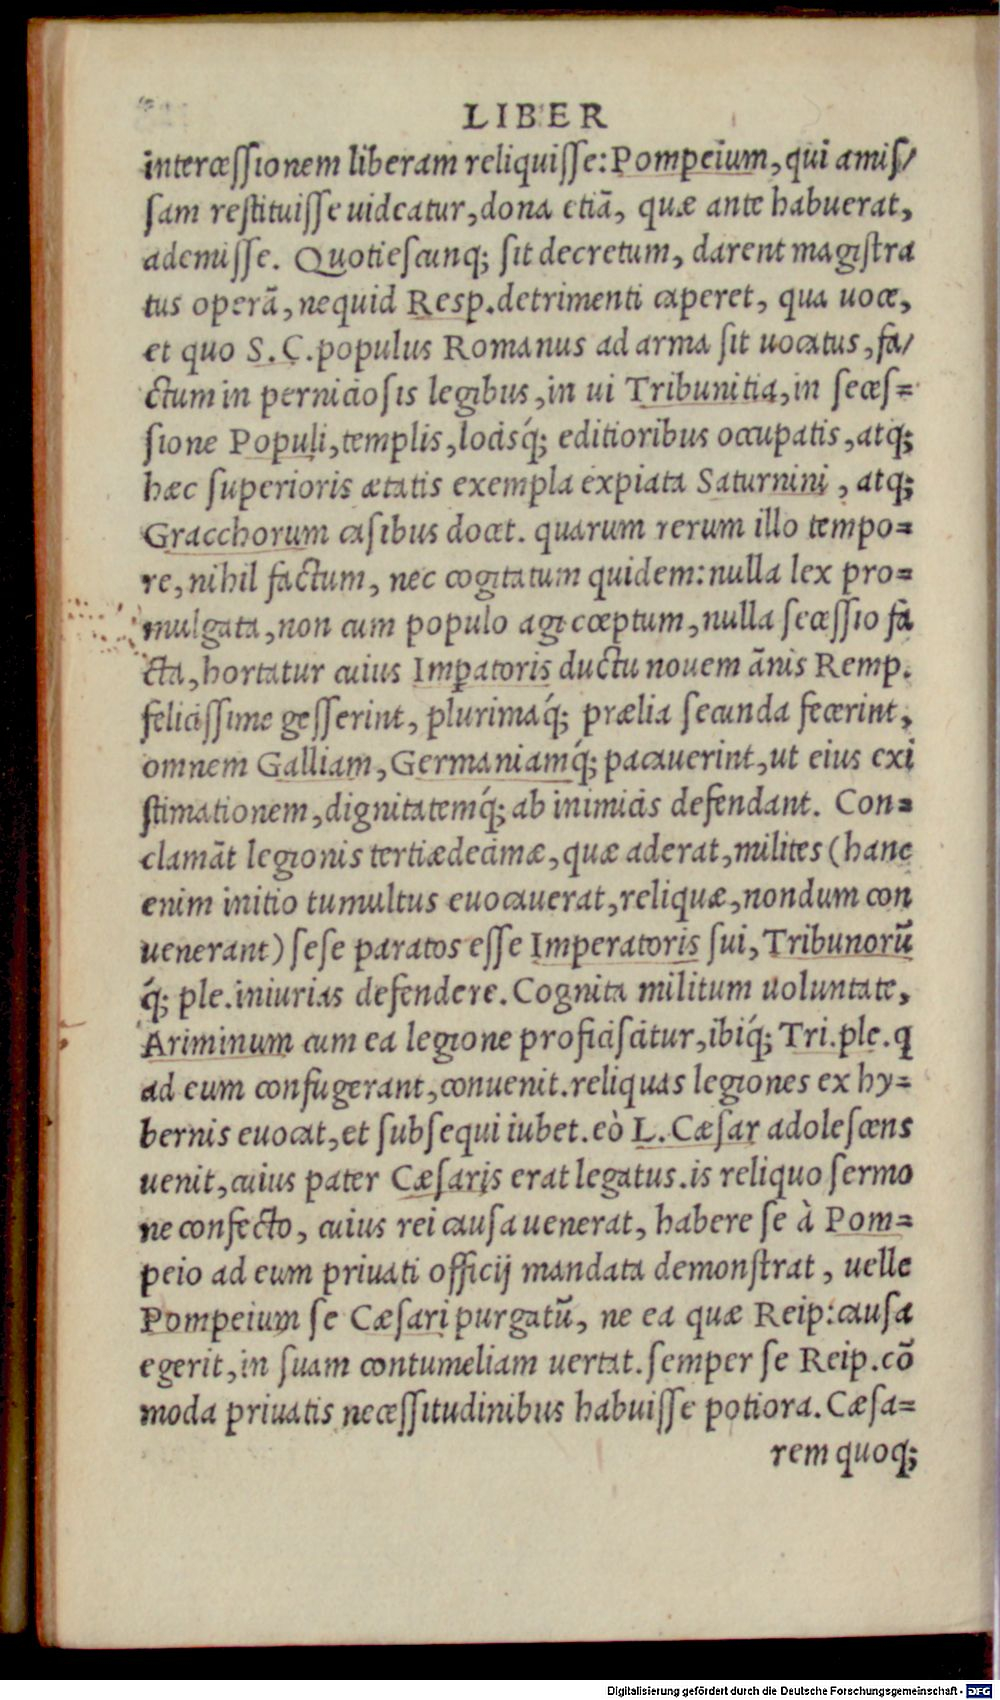 LIBER
intercessionem liberam reliquisse: Pompeium, qui amis/
sam restituisse uideatur, dona etiā, quæ ante habuerat,
ademisse. Quotiescunq; sit decretum, darent magistra
tus operā, nequid Resp. detrimenti caperet, qua uoce,
et quo S. C. populus Romanus ad arma sit uocatus, fa/
ctum in perniciosis legibus, in ui Tribunitia, in seces=
sione Populi, templis, locisq́; editioribus occupatis, atq;
hæc superioris ætatis exempla expiata Saturnini, atq;
Gracchorum casibus docet. quarum rerum illo tempo=
re, nihil factum, nec cogitatum quidem: nulla lex pro=
mulgata, non cum populo agi cœptum, nulla secessio fa
cta, hortatur cuius Impatoris ductu nouem ānis Remp.
felicissime gesserint, plurimaq́; prælia secunda fecerint,
omnem Galliam, Germaniamq́; pacauerint, ut eius exi
stimationem, dignitatemq́; ab inimicis defendant. Con=
clamāt legionis tertiædecimæ, quæ aderat, milites (hanc
enim initio tumultus euocauerat, reliquæ, nondum con
uenerant) sese paratos esse Imperatoris sui, Tribunorū
q́; ple. iniurias defendere. Cognita militum uoluntate,
Ariminum cum ea legione proficiscitur, ibiq́; Tri. ple. q
ad eum confugerant, conuenit. reliquas legiones ex hy=
bernis euocat, et subsequi iubet. eò L. Cæsar adolescens
uenit, cuius pater Cæsaris erat legatus. is reliquo sermo
ne confecto, cuius rei causa uenerat, habere se à Pom=
peio ad eum priuati officij mandata demonstrat, uelle
Pompeium se Cæsari purgatū, ne ea quæ Reip: causa
egerit, in suam contumeliam uertat. semper se Reip. cō
moda priuatis necessitudinibus habuisse potiora. Cæsa=
rem quoq;
Digitalisierung gefördert durch die Deutsche Forschungsgemeinschaft - DFG